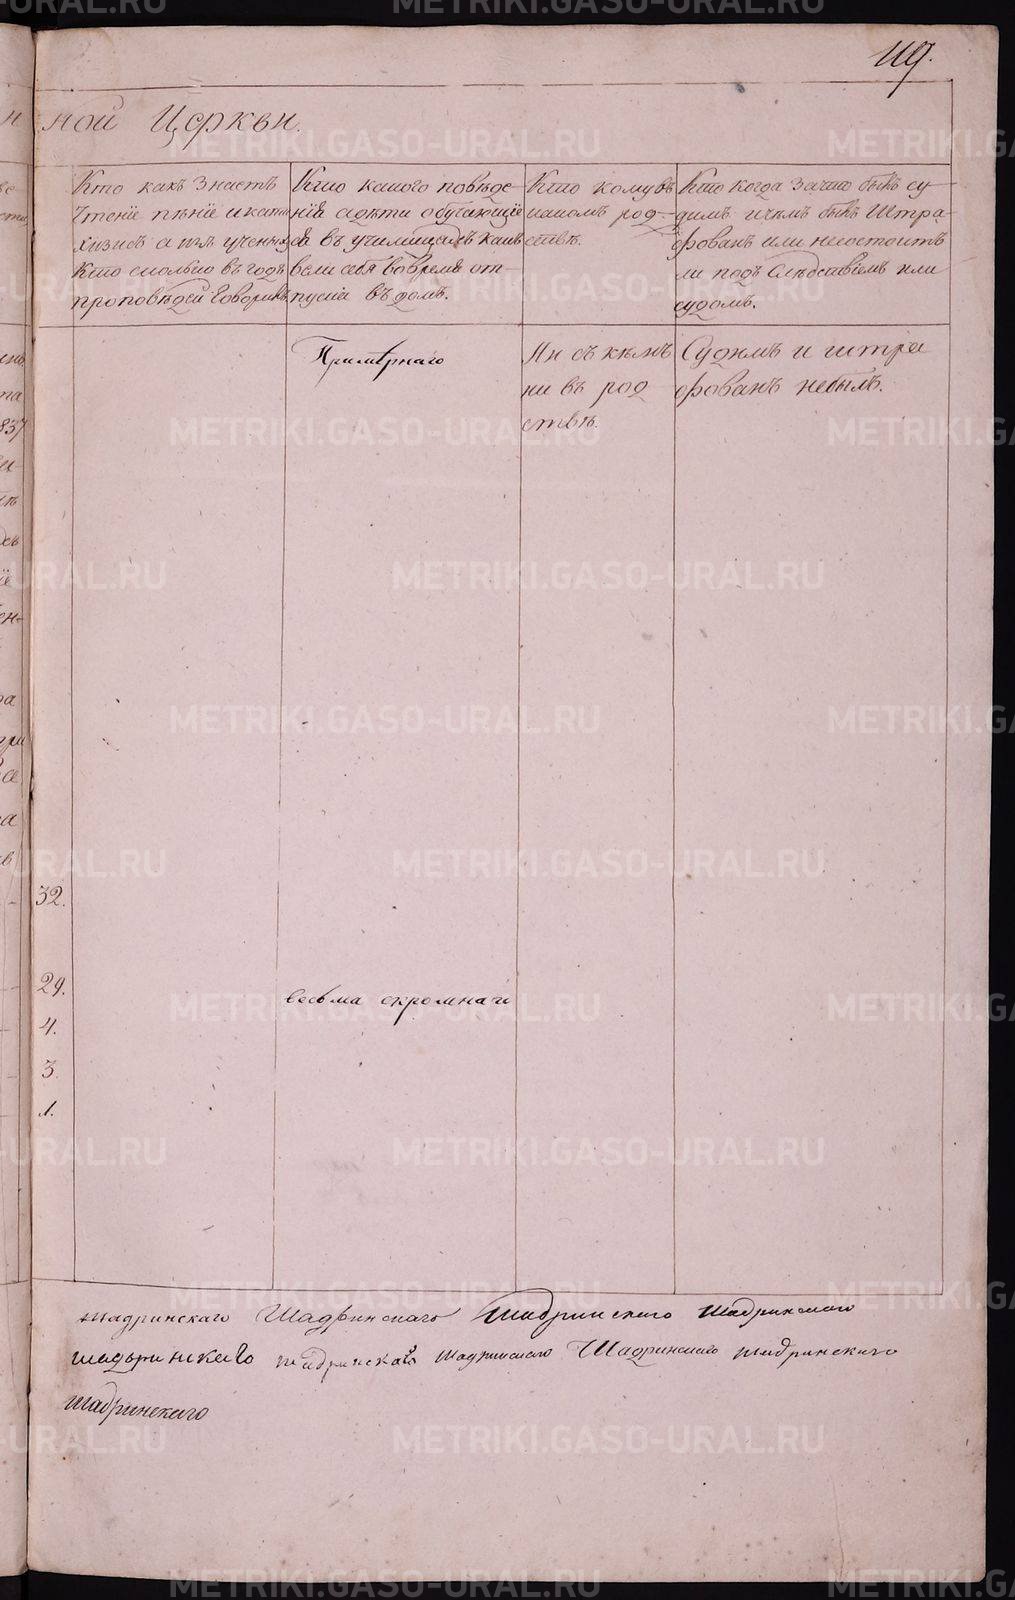 119.
ной Церкви.
Кто какъ Знаетъ
Чтенiе пѣнiе и кати
хизисъ а изъ ученыхъ
Кто сколько въ годъ
проповѣдей Говорилъ
Кто какого поведе-
нiя а дѣти обучающiе
ся въ училищахъ какъ
вели себя вовремя от-
пуска въ домъ.
Кто кому въ
какомъ род-
ствѣ.
Кто когда За что былъ су-
димъ и чѣмъ былъ Штра-
фованъ или несостоитъ
ли подъ Слѣдствiемъ или
судомъ.
Примѣрнаго
Ни съ кѣмъ
ни въ род
ствѣ.
Судимъ и штра
фованъ небылъ.
837
32.
29.
весьма скромнаго
4.
3.
1.
шадринскаго Шадринскаго Шадринскаго Шадринскаго
шадринскаго шадринскаго шадринскаго Шадринскаго шадринскаго
шадринскаго
METRIKI.GASO-URAL.RU